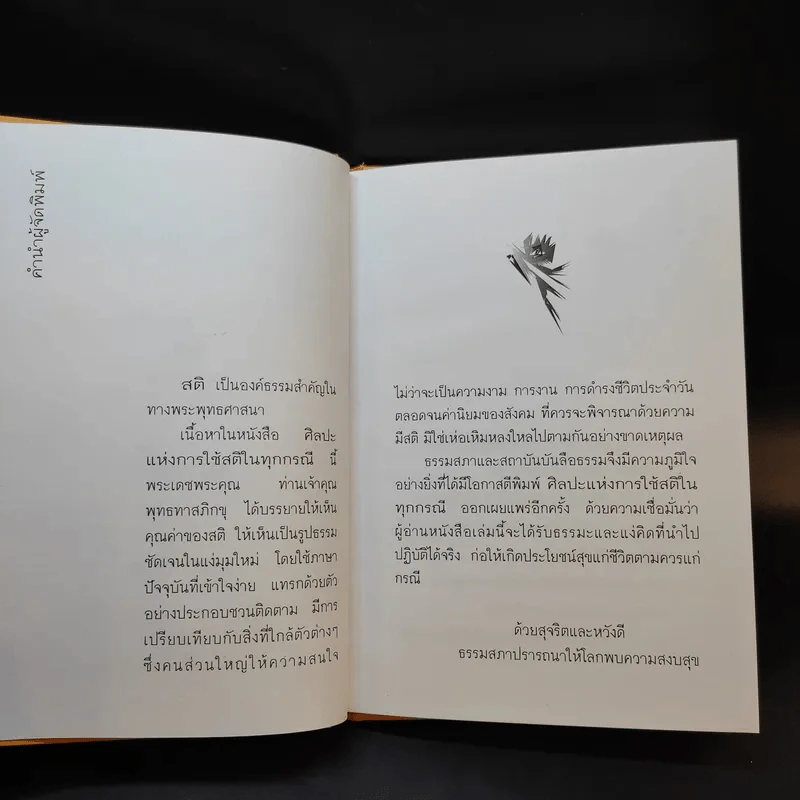 คำนำผู้จัดพิมพ์
สติ เป็นองค์ธรรมสำคัญใน
ทางพระพุทธศาสนา
เนื้อหาในหนังสือ ศิลปะ
แห่งการใช้สติในทุกกรณี นี้
พระเดชพระคุณ ท่านเจ้าคุณ
พุทธทาสภิกขุ ได้บรรยายให้เห็น
คุณค่าของสติ ให้เห็นเป็นรูปธรรม
ชัดเจนในแง่มุมใหม่ โดยใช้ภาษา
ปัจจุบันที่เข้าใจง่าย แทรกด้วยตัว
อย่างประกอบชวนติดตาม มีการ
เปรียบเทียบกับสิ่งที่ใกล้ตัวต่างๆ
ซึ่งคนส่วนใหญ่ให้ความสนใจ
ไม่ว่าจะเป็นความงาม การงาน การดำรงชีวิตประจำวัน
ตลอดจนค่านิยมของสังคม ที่ควรจะพิจารณาด้วยความ
มีสติ มิใช่เห่อเหิมหลงใหลไปตามกันอย่างขาดเหตุผล
ธรรมสภาและสถาบันบันลือธรรมจึงมีความภูมิใจ
อย่างยิ่งที่ได้มีโอกาสตีพิมพ์ ศิลปะแห่งการใช้สติใน
ทุกกรณี ออกเผยแพร่อีกครั้ง ด้วยความเชื่อมั่นว่า
ผู้อ่านหนังสือเล่มนี้จะได้รับธรรมะและแง่คิดที่นำไป
ปฏิบัติได้จริง ก่อให้เกิดประโยชน์สุขแก่ชีวิตตามควรแก่
กรณี
ด้วยสุจริตและหวังดี
ธรรมสภาปรารถนาให้โลกพบความสงบสุข